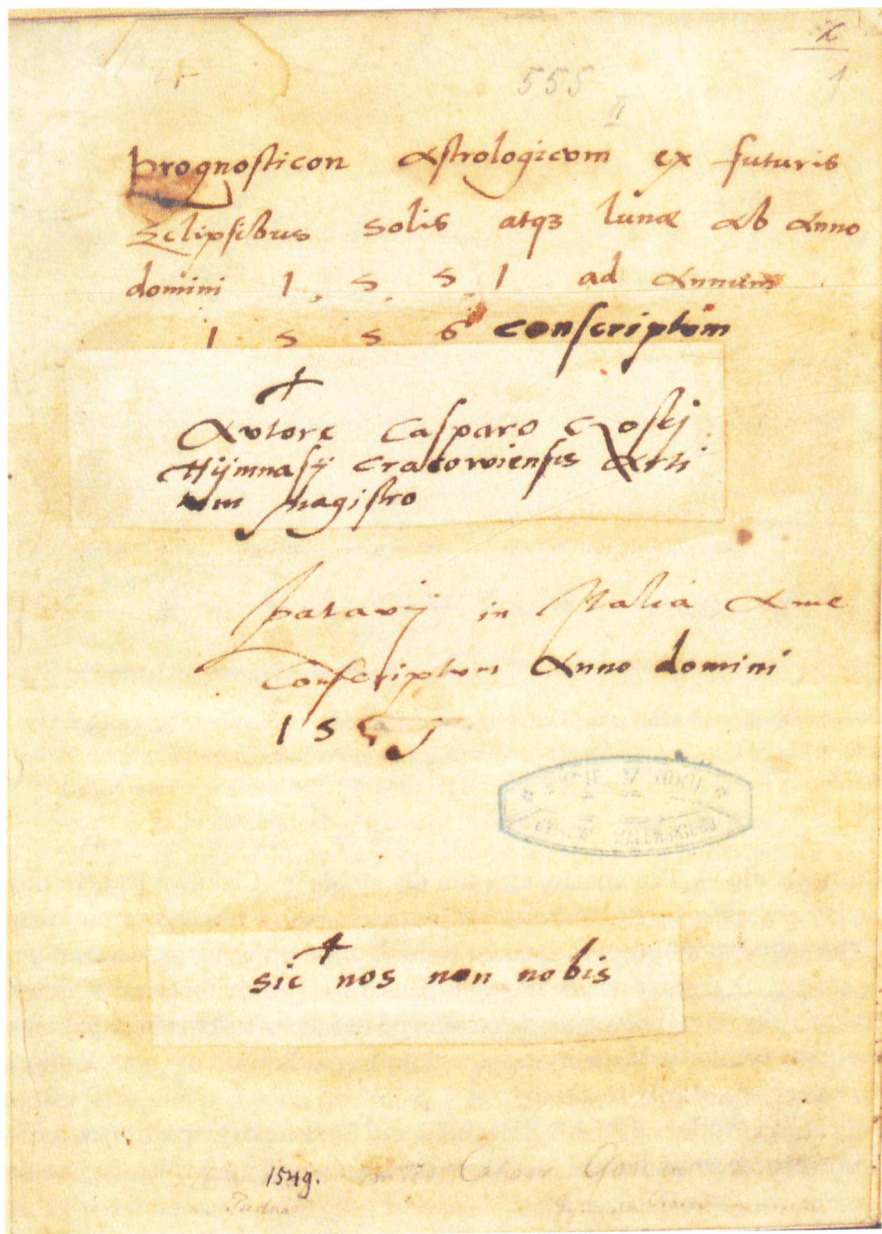 x
1
555
II
prognosticon astrologicum ex futuris
Eclipsibus solis atqз lunæ ab anno
domini 1, 5, 5, 1 ad annum
1 5 5 6 conscriptum
Autore Casparo
Hÿmnasÿ cracowiensis Arti
um magistro
patavÿ in Italia
Conscriptum Anno domini
155
sic nos non nobis
1549.
Padua